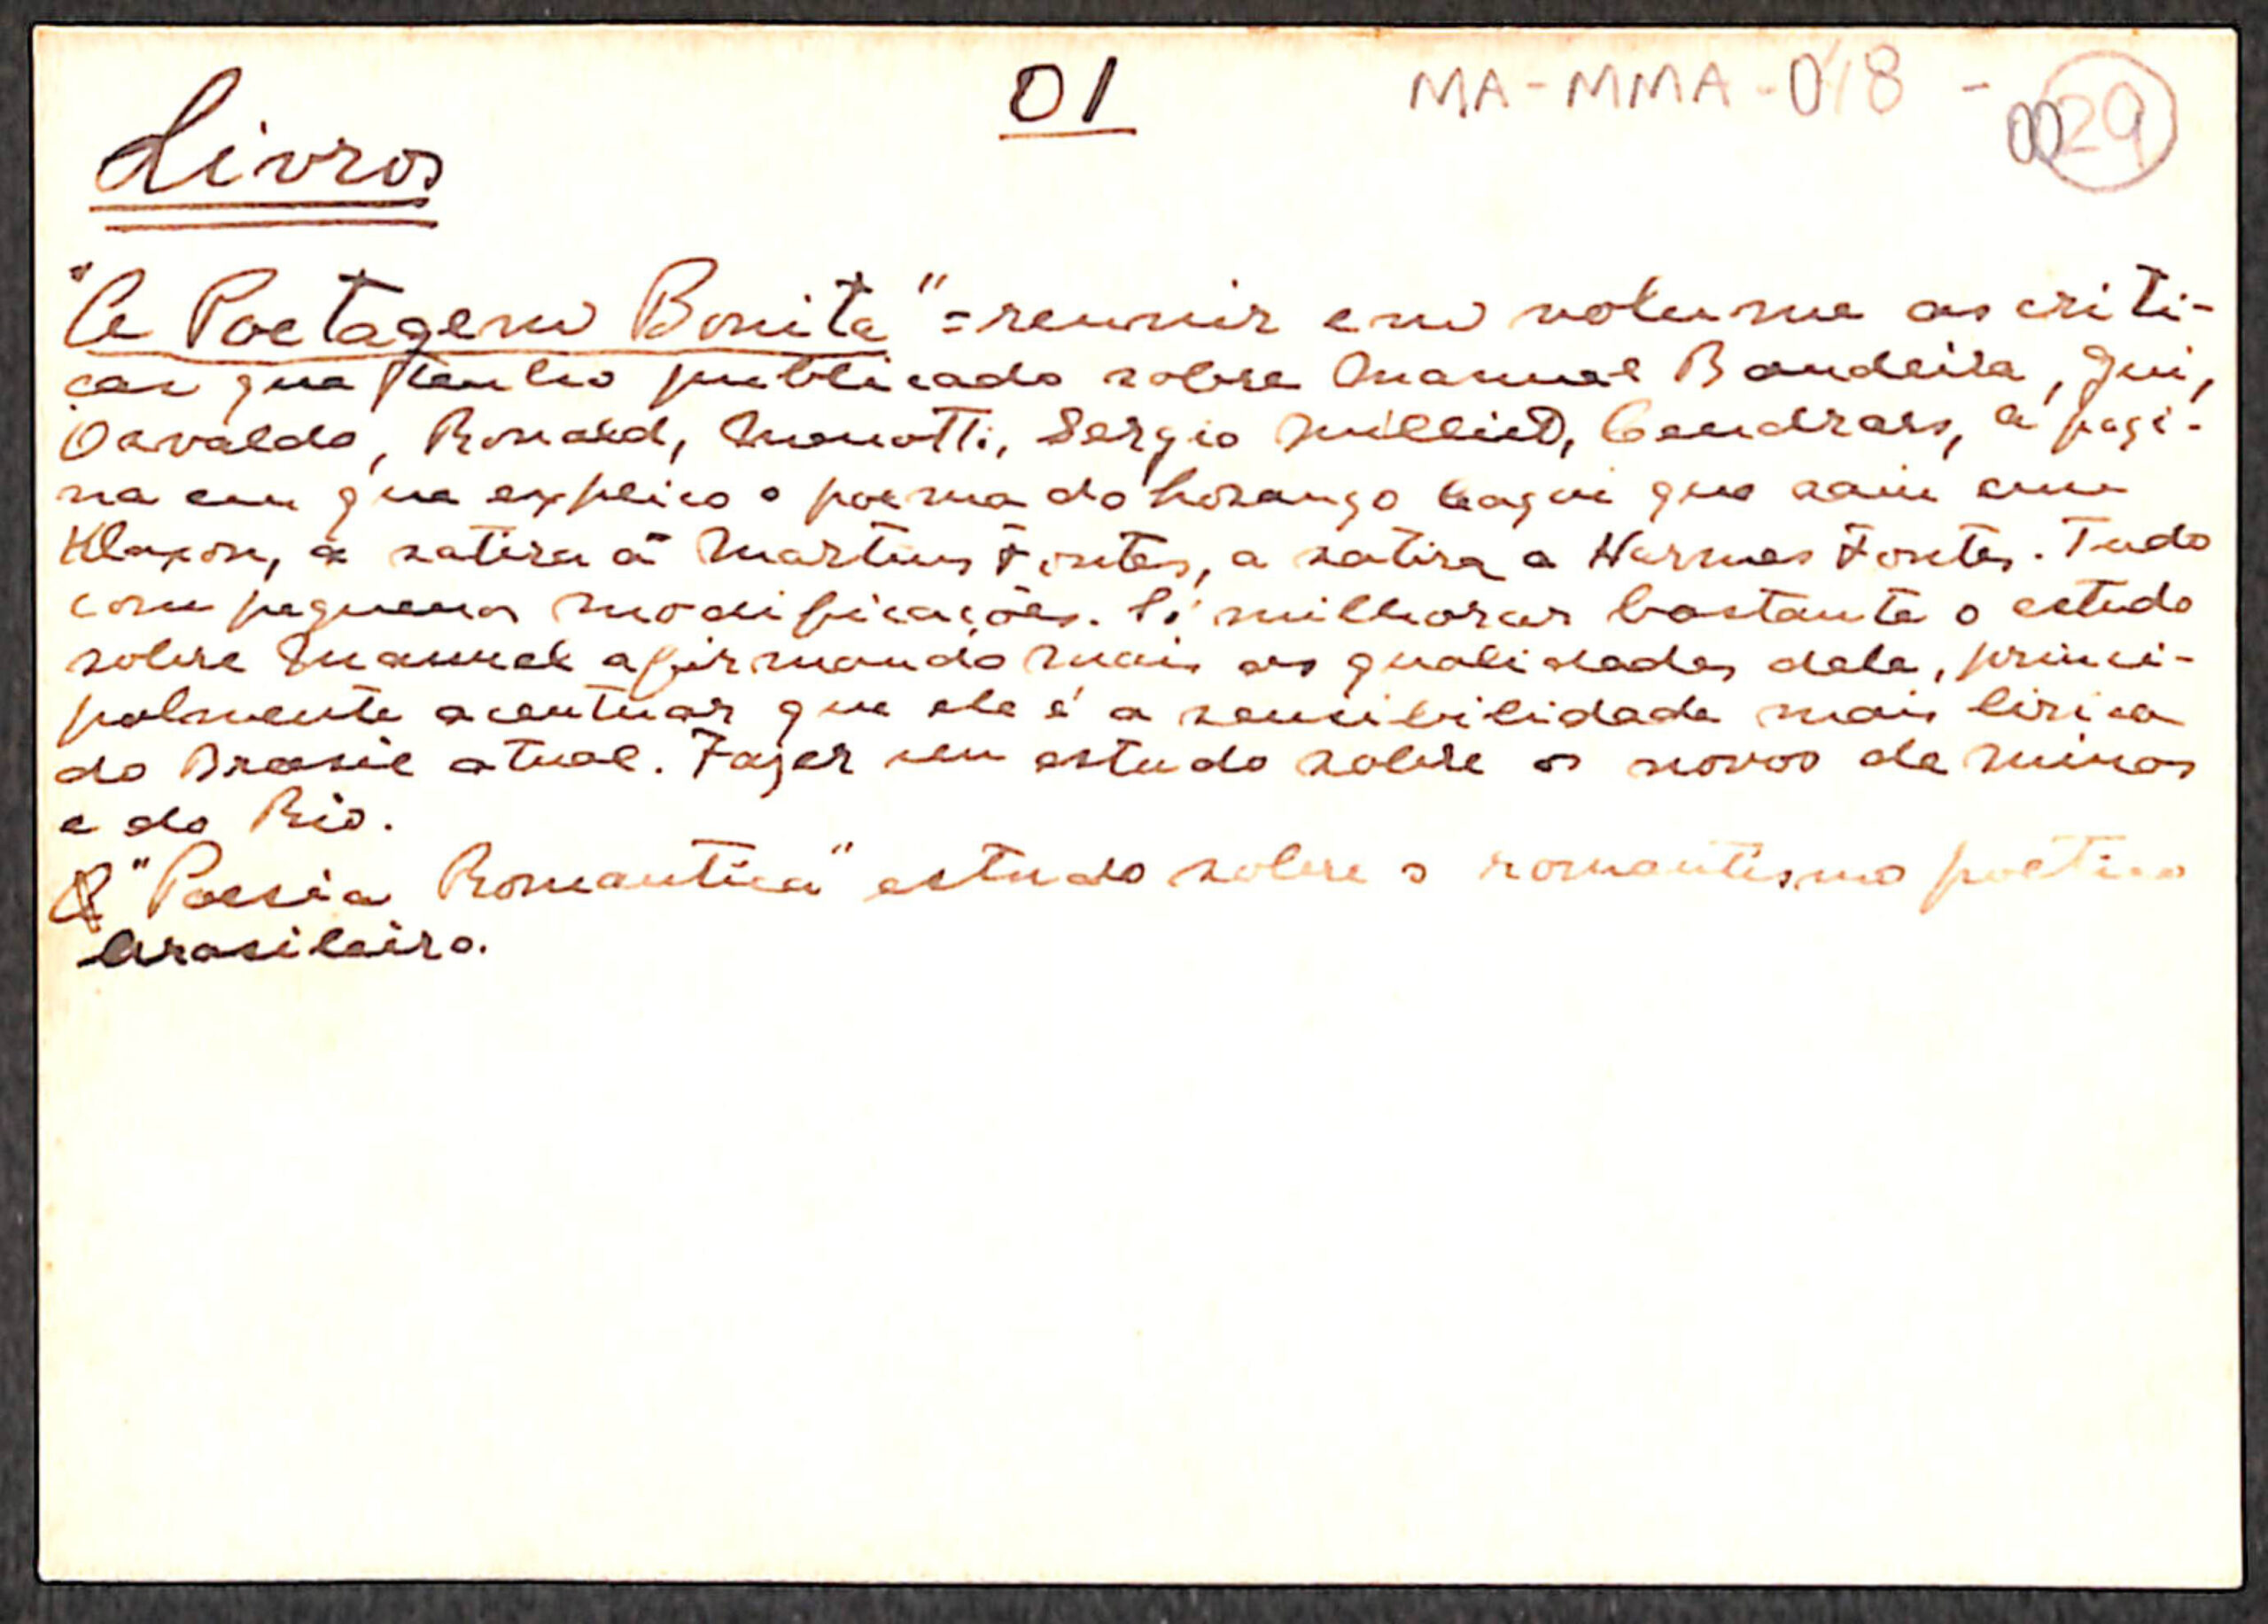 01
MA-MMA-018-
0029
Livros
"A Poetagem Bonita" = reunir em volume as criti-
cas que tenho publicado sobre Manuel Bandeira, Gui,
Osvaldo, Ronald, Menotti, Sergio Milliet, Cendrars, a pagi-
na em que explico o poema do Losango Caqui que saiu em
Klaxon, a satira a Martins Fontes, a satira a Hermes Fontes. Tudo
com pequenas modificações. Só milhorar bastante o estudo
sobre Manuel afirmando mais as qualidades dele, princi-
palmente acentuar que ele é a sensibilidade mais lirica
do Brasil atual. Fazer um estudo sobre os novos de Minas
e do Rio.
"Poesia Romantica" estudo sobre o romantismo poetico
brasileiro.